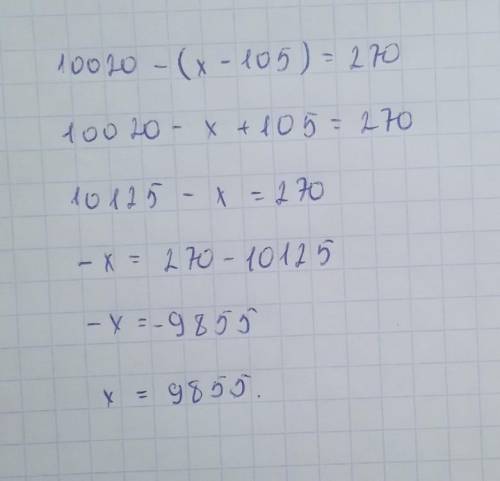 10020 - (x - 105) = 270
10020 - x + 105 = 270
10125 - x = 270
- x = 270 - 10125
- x = - 9855
x = 9855.